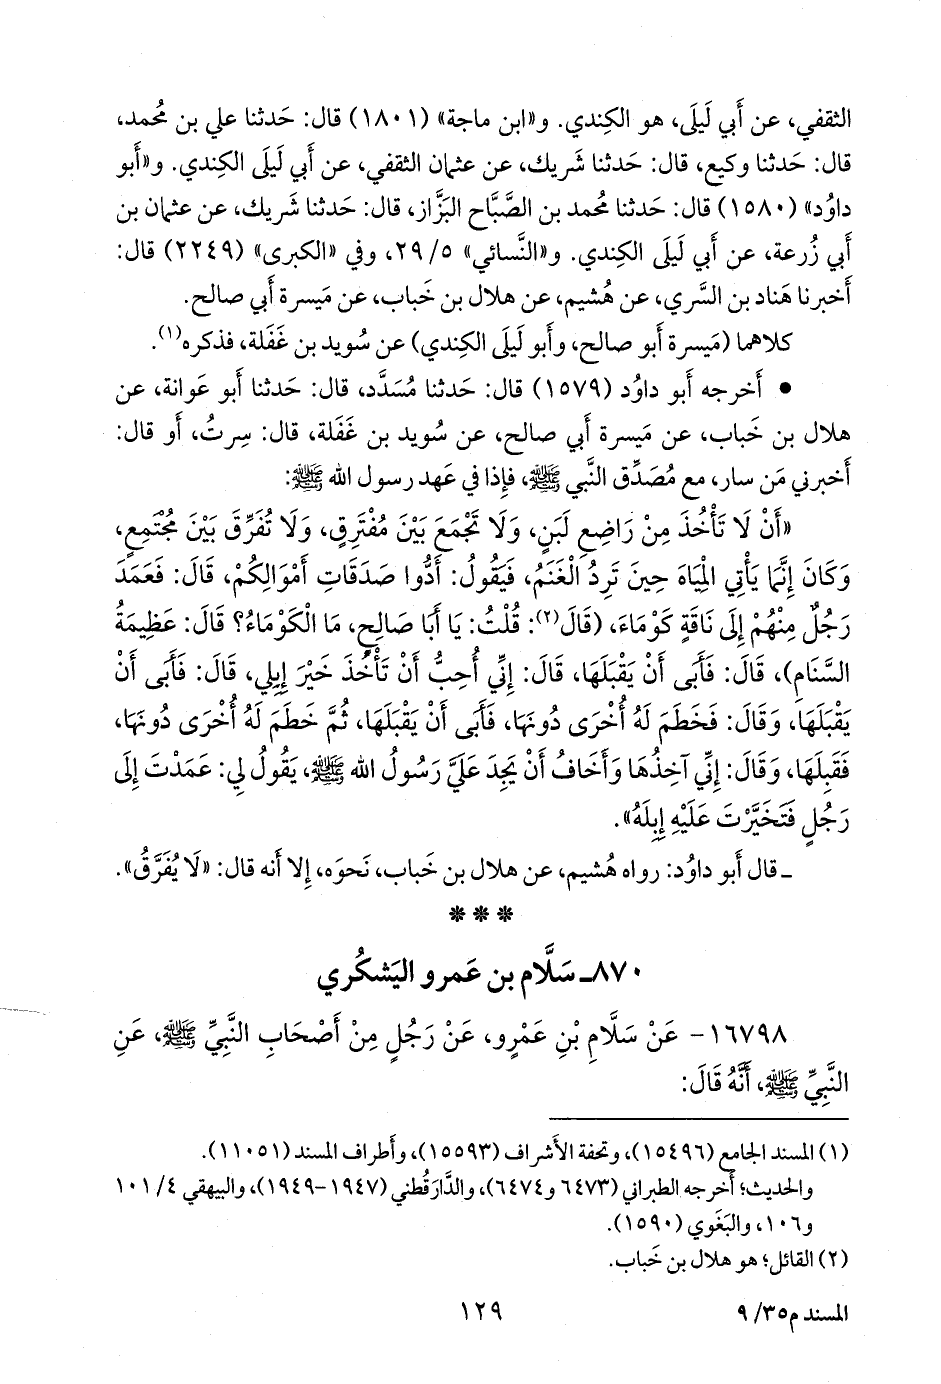 الثقفي، عن أَبي لَيلَى، هو الكِندي. و«ابن ماجة» (١٨٠١) قال: حَدثنا علي بن مُحمد،
قال: حَدثنا وكيع، قال: حَدثنا شَريك، عن عثمان الثقفي، عن أَبي لَيلَى الكِندي. و«أَبو
داوُد» (١٥٨٠) قال: حَدثنا مُحمد بن الصَّبَّاح البَزَّاز، قال: حَدثنا شَريك، عن عثمان بن
أَبي زُرعة، عن أَبي لَيلَى الكِندي. و«النَّسائي» ٥/ ٢٩، وفي «الكبرى» (٢٢٤٩) قال:
أَخبرنا هَناد بن السَّري، عن هُشيم، عن هلال بن خَباب، عن مَيسرة أَبي صالح.
كلاهما (مَيسرة أَبو صالح، وأَبو لَيلَى الكِندي) عن سُويد بن غَفَلة، فذكره(١).
• أَخرجه أَبو داوُد (١٥٧٩) قال: حَدثنا مُسَدَّد، قال: حَدثنا أَبو عَوانة، عن
هلال بن خَباب، عن مَيسرة أَبي صالح، عن سُويد بن غَفَلة، قال: سِرتُ، أَو قال:
أَخبرني مَن سار، مع مُصَدِّق النَّبي ﷺ، فإِذا في عَهد رسول الله ﷺ:
«أَنْ لَا تَأْخُذَ مِنْ رَاضِعِ لَبَنٍ، وَلَا تَجْمَعَ بَيْنَ مُفْتَرِقٍ، وَلَا تُفَرِّقَ بَيْنَ مُجْتَمِعٍ،
وَكَانَ إِنَّمَا يَأْتِي الْمِيَاهَ حِينَ تَرِدُ الْغَنَمُ، فَيَقُولُ: أَدُّوا صَدَقَاتِ أَمْوَالِكُمْ، قَالَ: فَعَمَدَ
رَجُلٌ مِنْهُمْ إِلَى نَاقَةٍ كَوْمَاءَ، (قَالَ(٢): قُلْتُ: يَا أَبَا صَالِحٍ، مَا الْكَوْمَاءُ؟ قَالَ: عَظِيمَةُ
السَّنَامِ)، قَالَ: فَأَبَى أَنْ يَقْبَلَهَا، قَالَ: إِنِّي أُحِبُّ أَنْ تَأْخُذَ خَيْرَ إِبِلِي، قَالَ: فَأَبَى أَنْ
يَقْبَلَهَا، وَقَالَ: فَخَطَمَ لَهُ أُخْرَى دُونَهَا، فَأَبَى أَنْ يَقْبَلَهَا، ثُمَّ خَطَمَ لَهُ أُخْرَى دُونَهَا،
فَقَبِلَهَا، وَقَالَ: إِنِّي آخِذُهَا وَأَخَافُ أَنْ يَجِدَ عَلَيَّ رَسُولُ الله ﷺ، يَقُولُ لِي: عَمَدْتَ إِلَى
رَجُلٍ فَتَخَيَّرْتَ عَلَيْهِ إِبِلَهُ».
ـ قال أَبو داوُد: رواه هُشيم، عن هلال بن خَباب، نَحوَه، إِلا أَنه قال: «لَا يُفَرَّقُ».
***
٨٧٠ـ سَلَّام بن عَمرو اليَشكُري
١٦٧٩٨ - عَنْ سَلَّامِ بْنِ عَمْرٍو، عَنْ رَجُلٍ مِنْ أَصْحَابِ النَّبِيِّ ﷺ، عَنِ
النَّبِيِّ ﷺ، أَنَّهُ قَالَ:
(١) المسند الجامع (١٥٤٩٦)، وتحفة الأشراف (١٥٥٩٣)، وأطراف المسند (١١٠٥١).
والحديث؛ أخرجه الطبراني (٦٤٧٣ و٦٤٧٤)، والدَّارَقُطني (١٩٤٧-١٩٤٩)، والبيهقي ٤/ ١٠١
و١٠٦، والبَغَوي (١٥٩٠).
(٢) القائل؛ هو هلال بن خَباب.
المسند م٣٥/ ٩
١٢٩